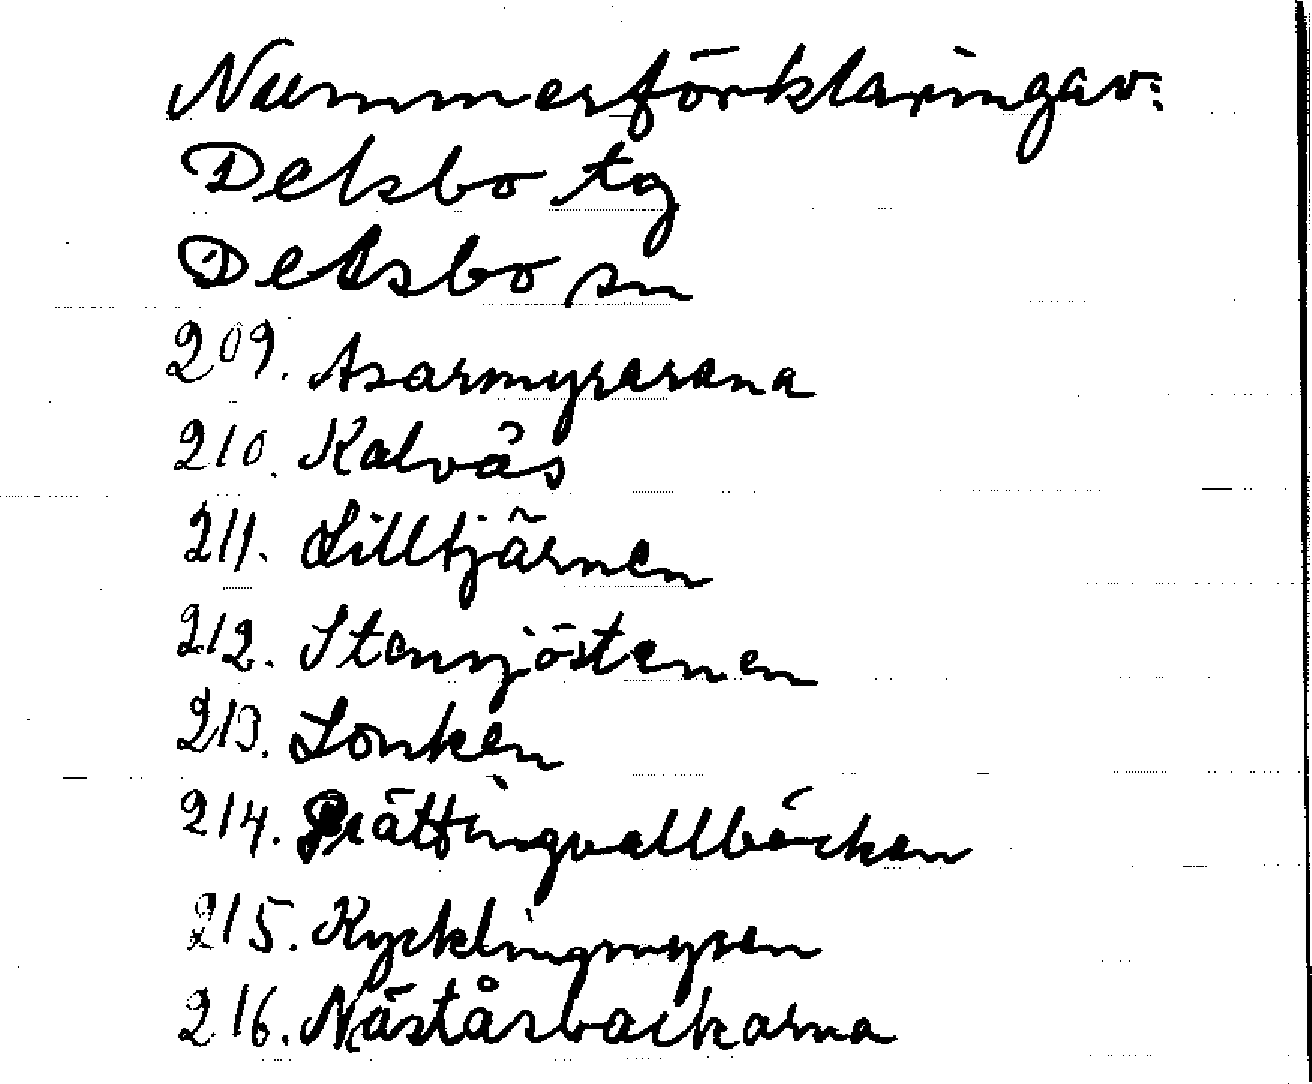 Nummerförklaringav:
Delsbo tg
Delsbo sn
209. Asarmyrarana
210. Kalvås
211. Lilltjärnen
212. Stensjöstenen
213. Lonken
214. Prättingvallbäcken
215. Kycklingmyren
216. Nästårbackarna